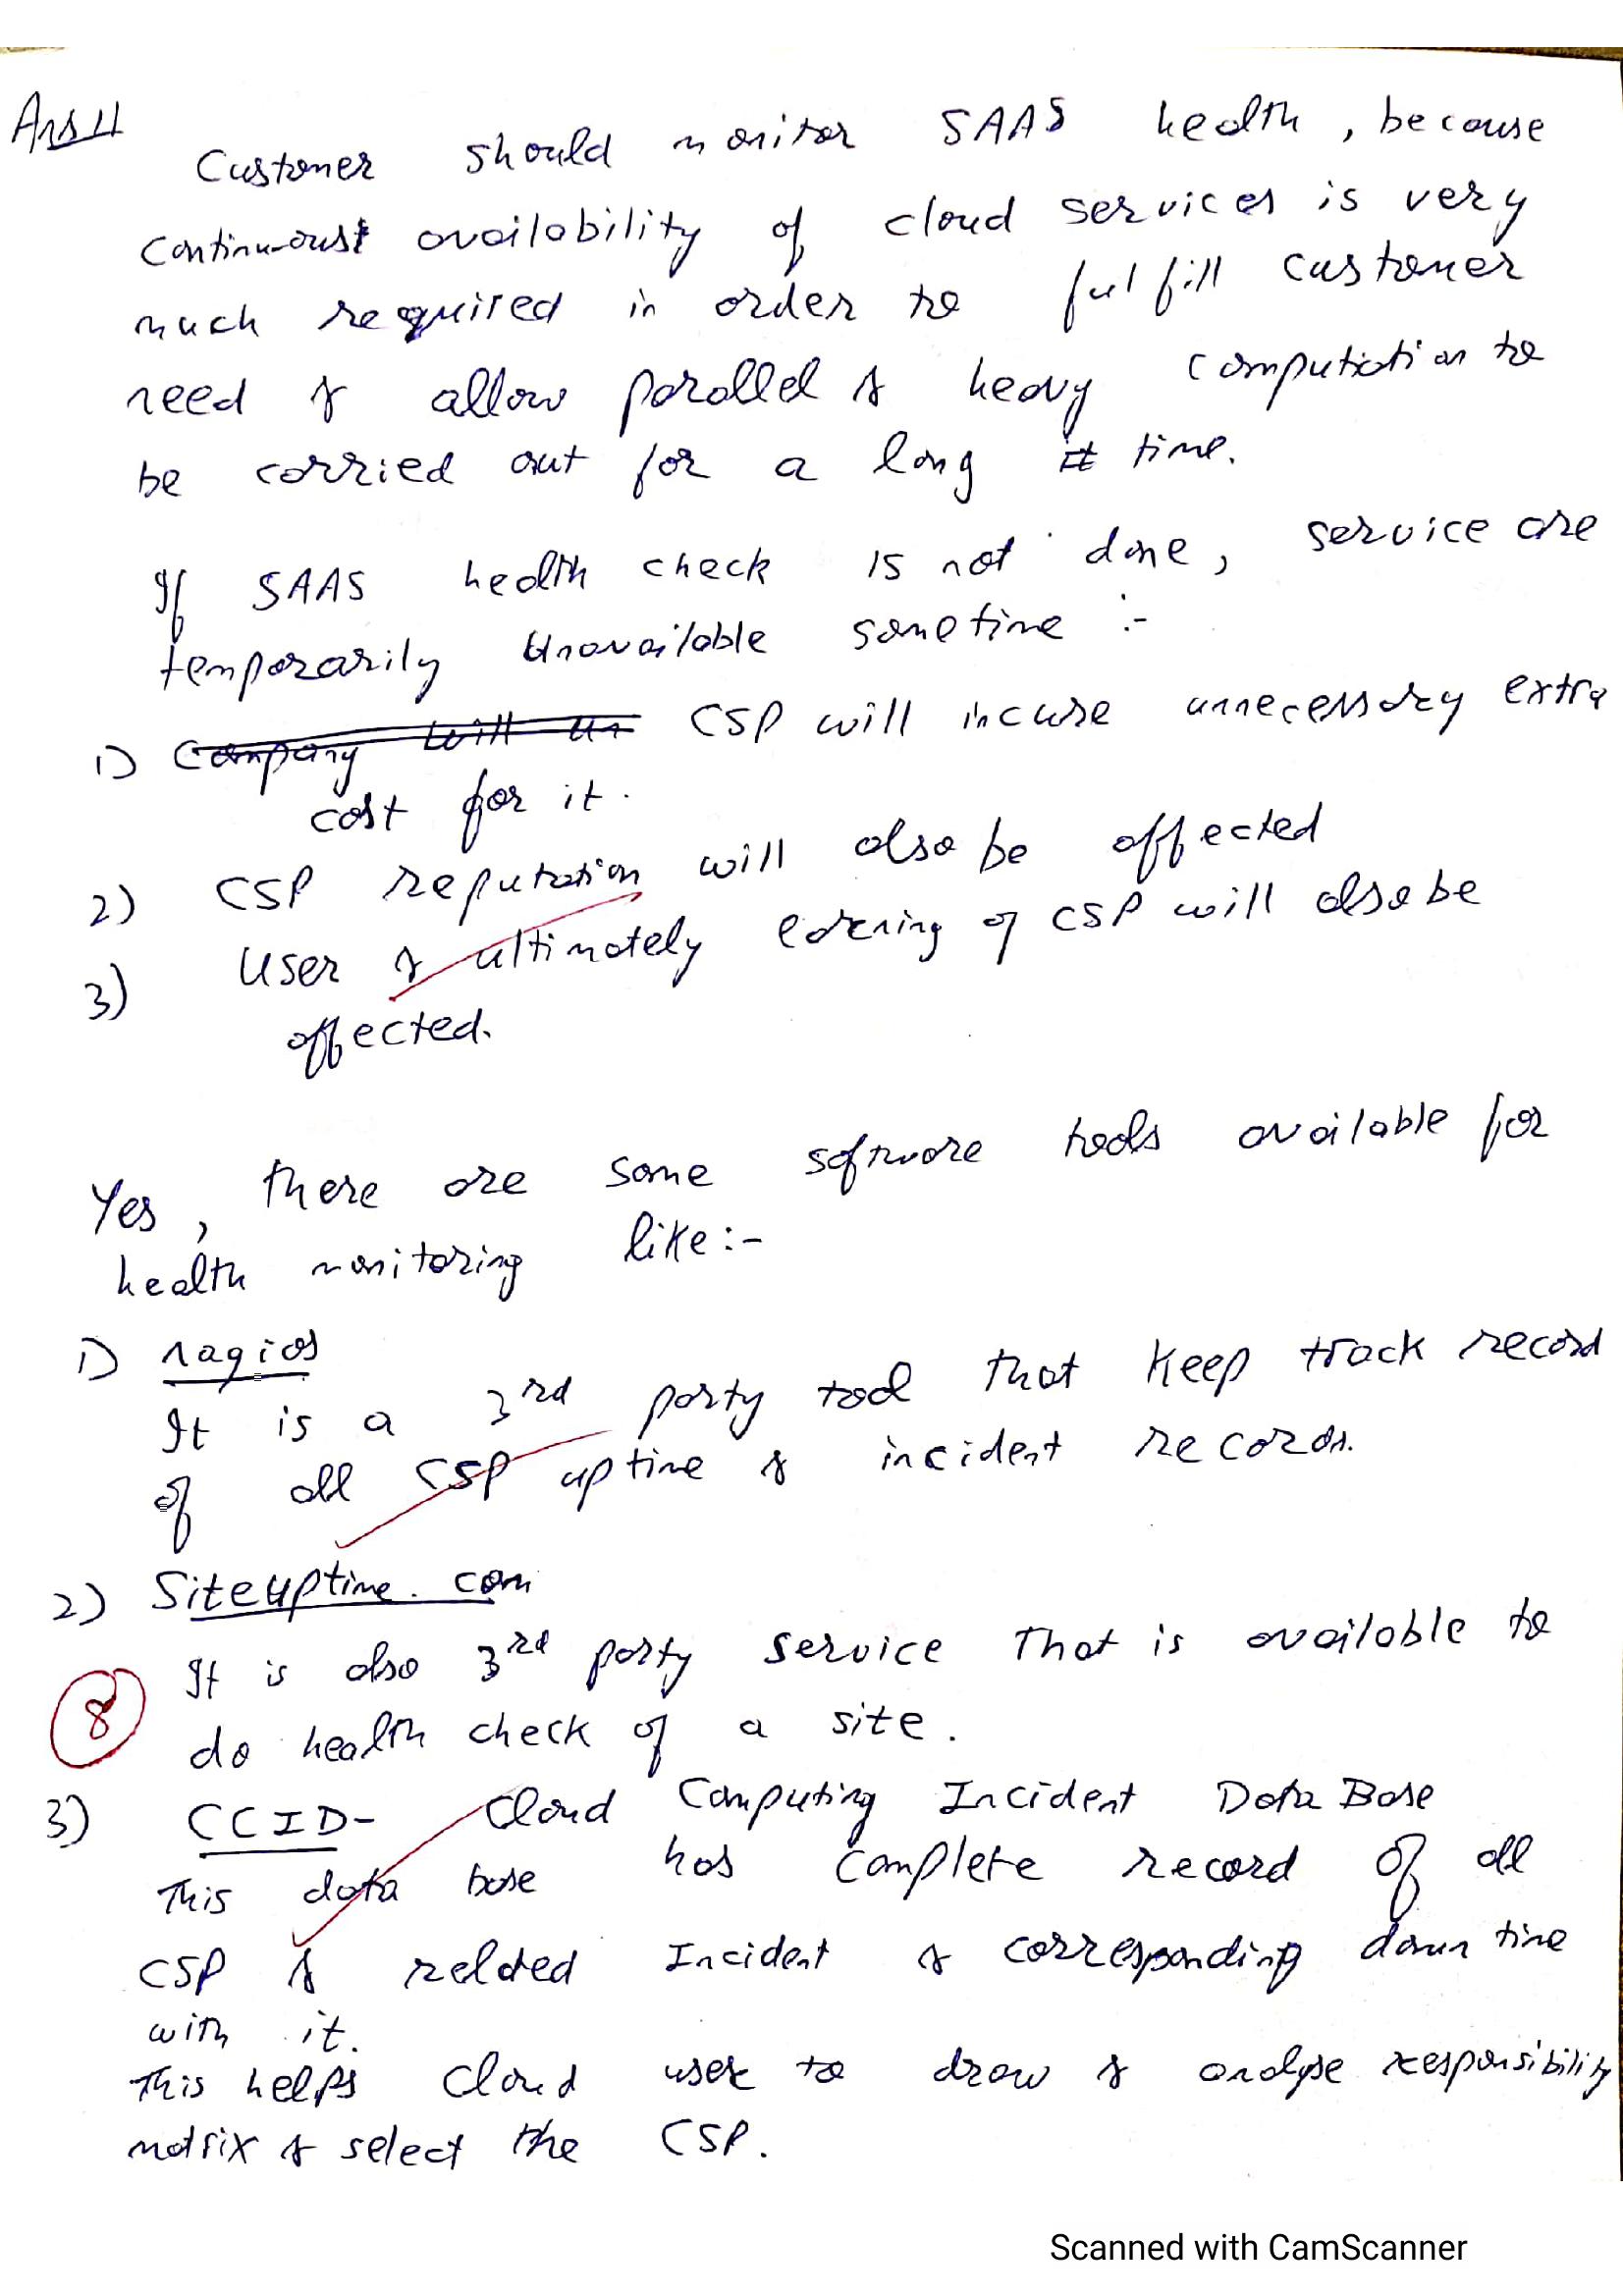 Ans 4
Customer should monitor SAAS health, because
continuoust availability of cloud services is very
much required in order to fulfill customer
need & allow parallel & heavy computiation to
be carried out for a long time.
If SAAS health check is not done, service are
temporarily Unavailable sometime :-
1) Company will un CSP will incure unnecessary extra
cost for it.
2) CSP reputation will also be affected
3) User & ultimately earning of CSP will also be
affected.
Yes, there are some software tools available for
health monitoring like:-
1) nagios
It is a 3rd party tool that keep track record
of all CSP uptime & incident records.
2) Siteuptime.com
It is also 3rd party service that is available to
8
do health check of a site.
3) CCID- Cloud Computing Incident Data Base
This data base has complete record of all
CSP & related Incident & corresponding down time
with it.
This helps cloud user to draw & analyse responsibility
matrix & select the CSP.
Scanned with CamScanner